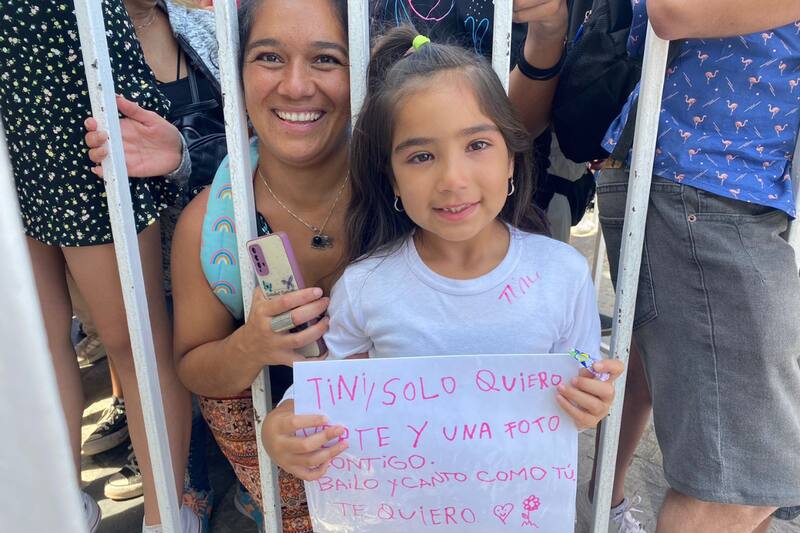 TINI
TINI/SOLO QUIERO
VERTE Y UNA FOTO
CONTIGO.
BAILO Y CANTO COMO TÚ,
TE QUIERO